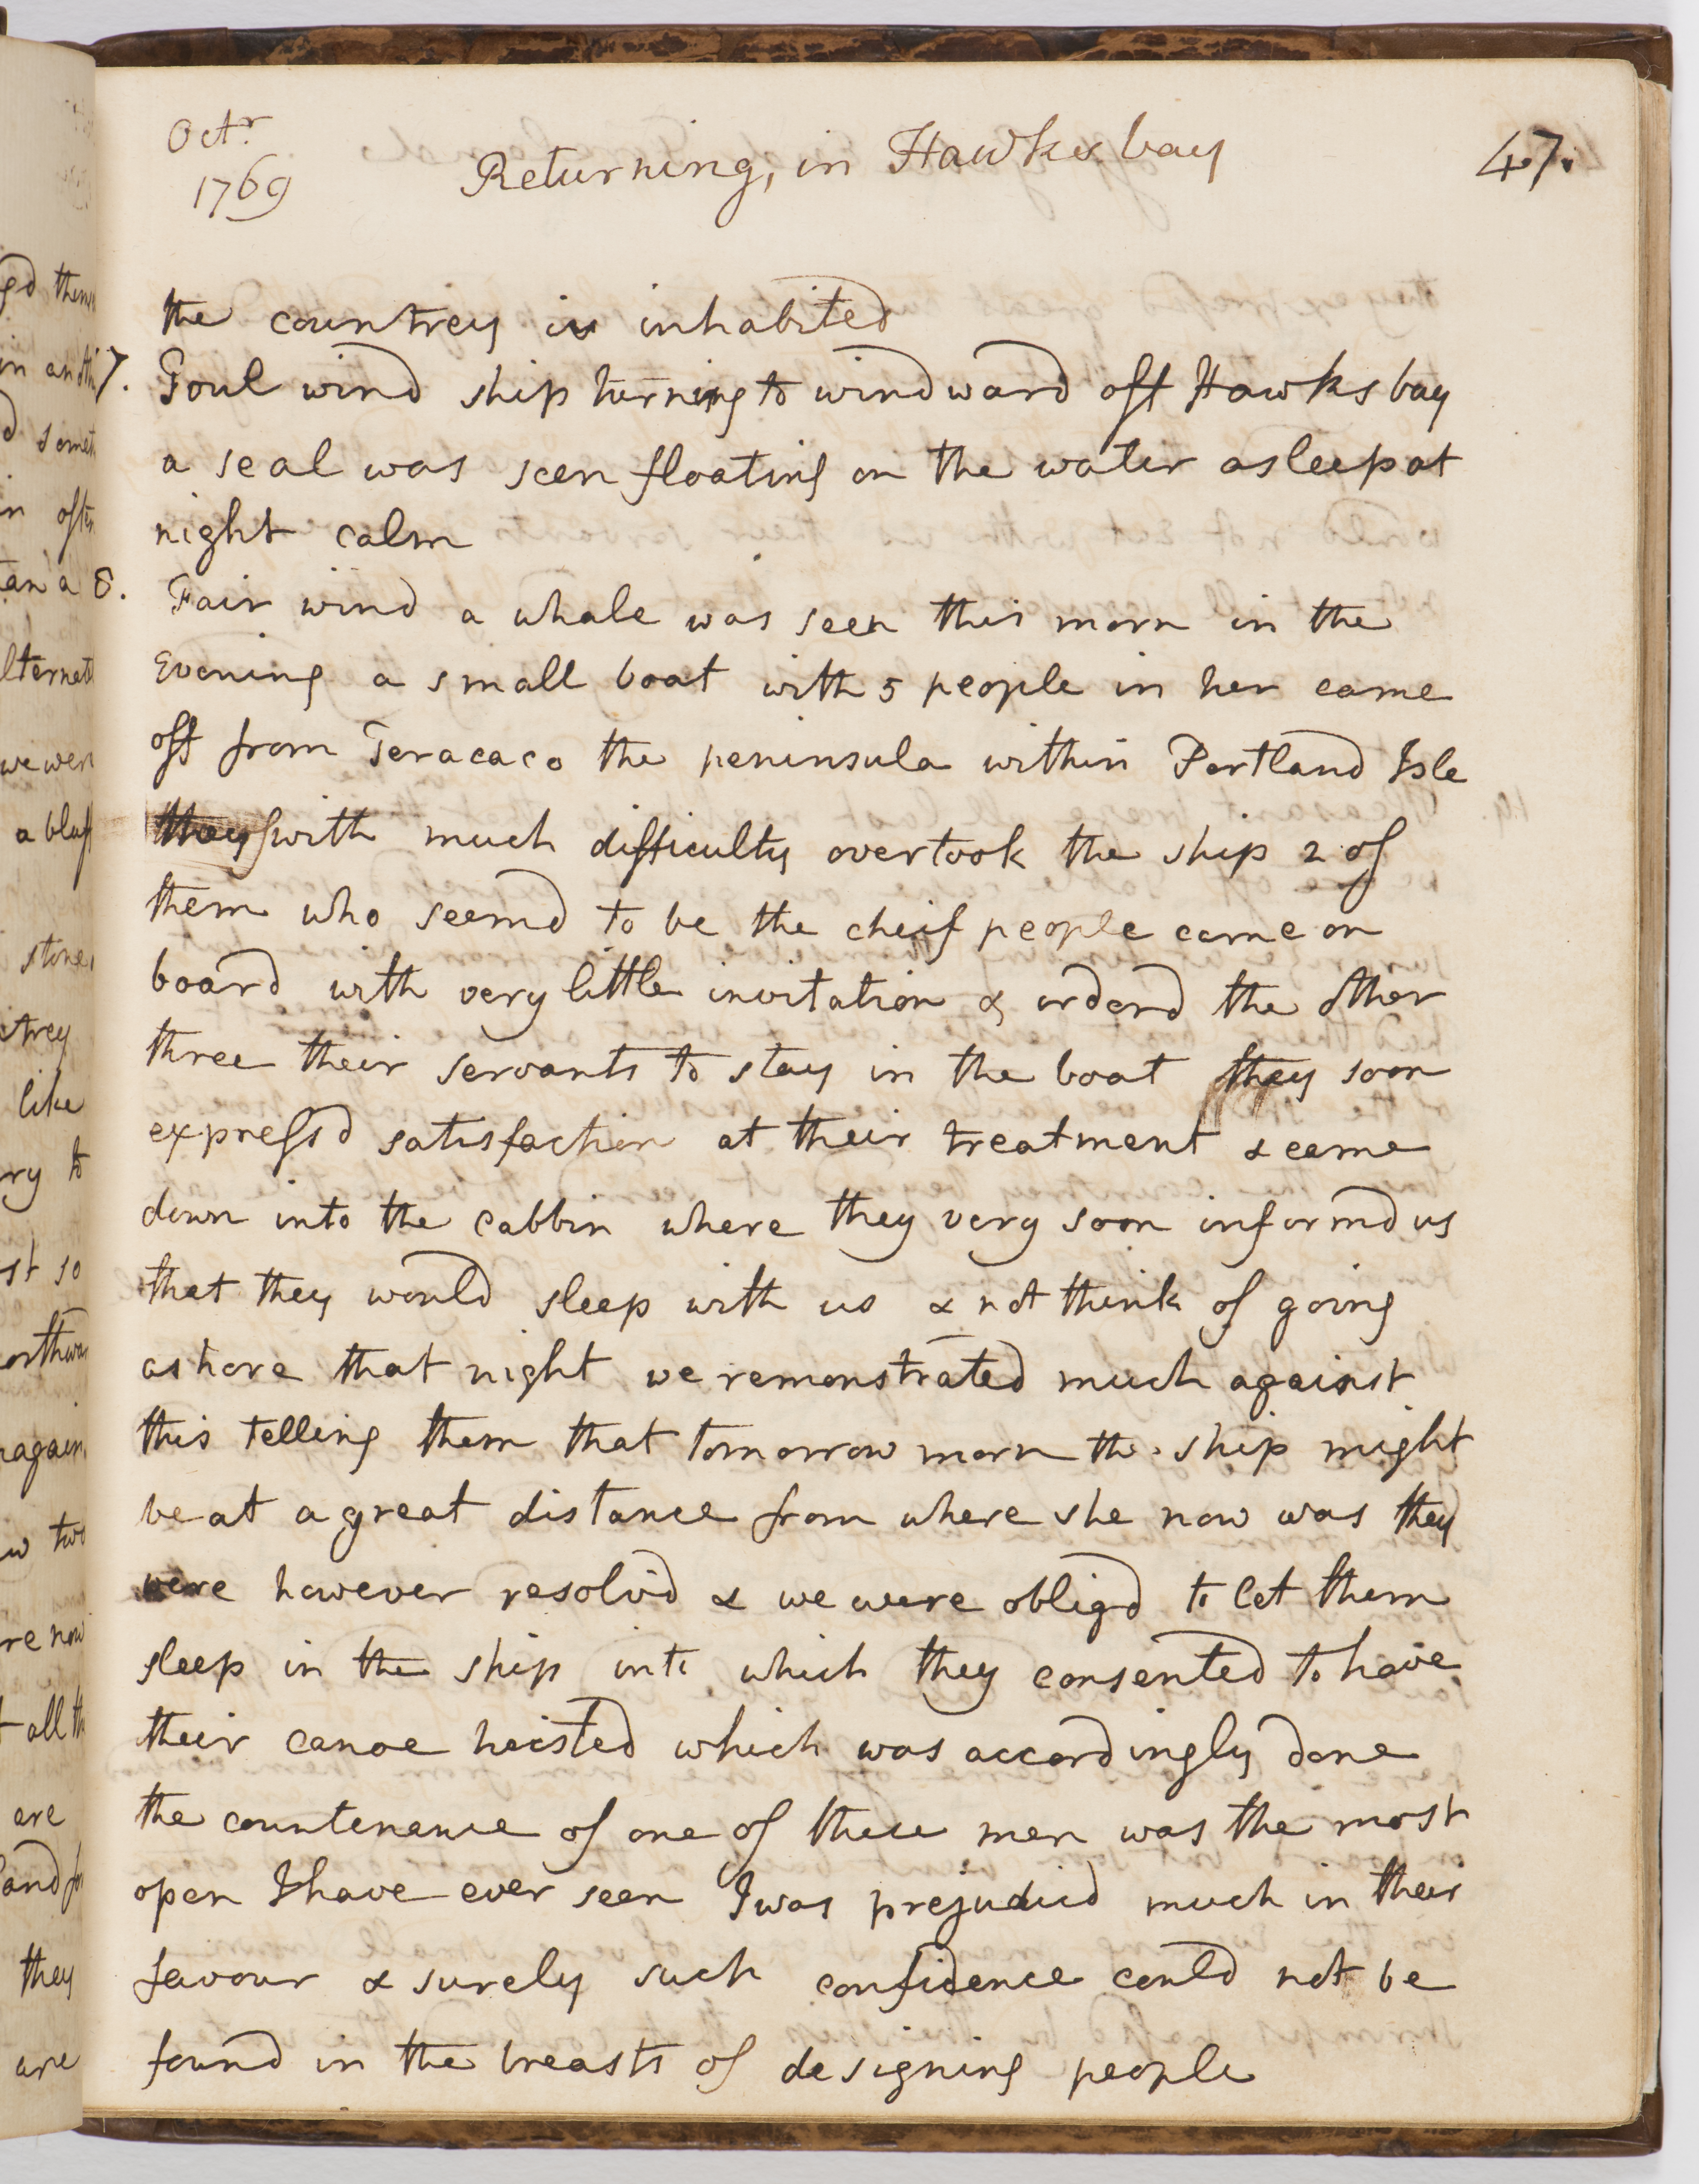 Octr
1769
Returning, in Hawks bay
47.
the countrey is inhabited
7. Foul wind ship turning to windward off Hawks bay
a seal was seen floating on the water asleep at
night calm
8. Fair wind a whale was seen this morn in the
Evening a small boat with 5 people in her came
off from Teracaco the peninsula within Portland Isle
they with much difficulty overtook the ship 2 of
them who seemd to be the cheif people came on
board with very little invitation & orderd the other
three their servants to stay in the boat they soon
expressd satisfaction at their treatment & came
down into the cabbin where they very soon informd us
that they would sleep with us & not think of going
ashore that night we remonstrated much against
this telling them that tomorrow morn the ship might
be at a great distance from where she now was they
were however resolvd & we were obligd to let them
sleep in the ship into which they consented to have
their canoe hoisted which was accordingly done
the countenance of one of these men was the most
open I have ever seen I was prejudicd much in their
favour & surely such confidence could not be
found in the breasts of designing people